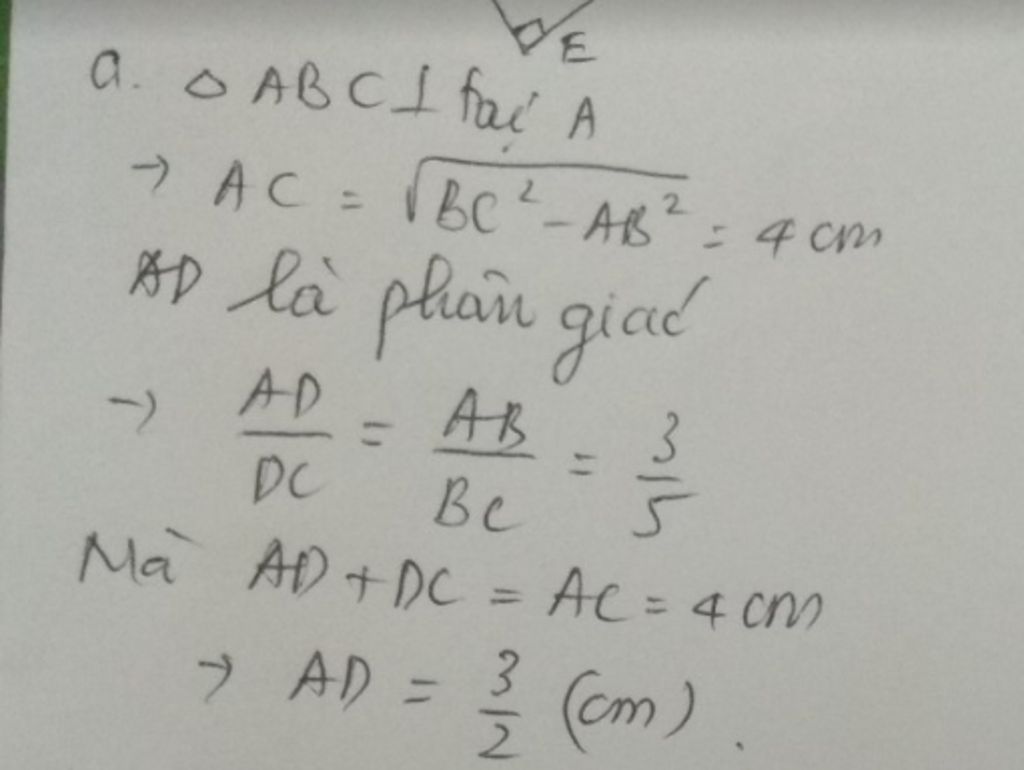 E
a. △ ABC ⊥ tại A
→ AC = √(BC² - AB²) = 4 cm
BD là phân giác
→ AD/DC = AB/BC = 3/5
Mà AD + DC = AC = 4 cm
→ AD = 3/2 (cm).